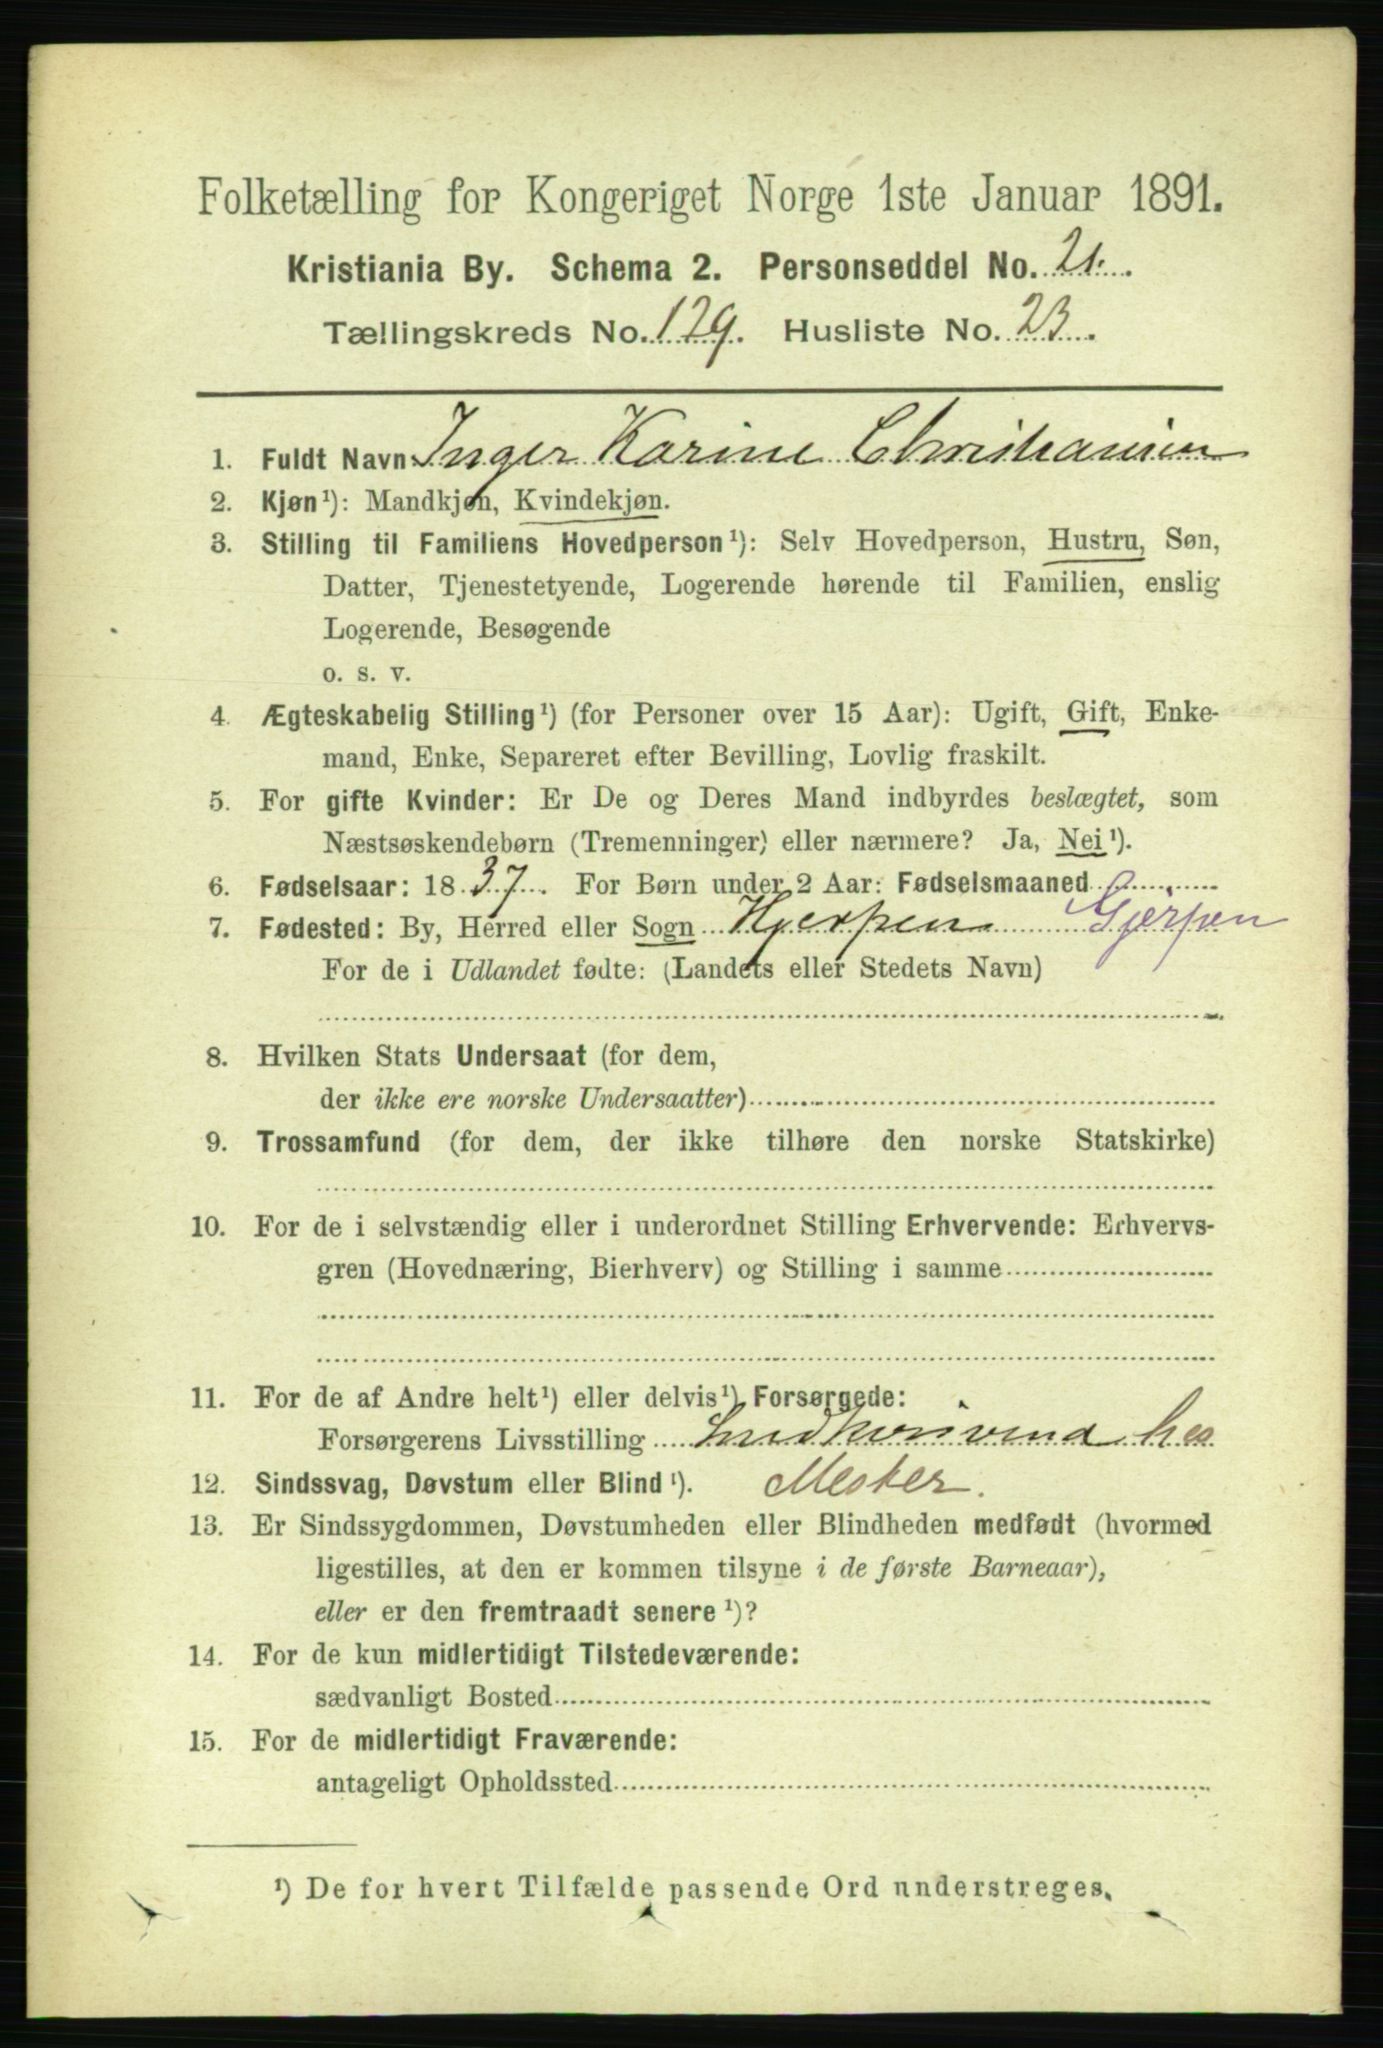 Folketælling for Kongeriget Norge 1ste Januar 1891.
Kristiania By. Schema 2. Personseddel No. 21.
Tællingskreds No. 129. Husliste No. 23.
1. Fuldt Navn Inger Karine Christiansen
2. Kjøn¹): Mandkjøn, Kvindekjøn.
3. Stilling til Familiens Hovedperson¹): Selv Hovedperson, Hustru, Søn,
Datter, Tjenestetyende, Logerende hørende til Familien, enslig
Logerende, Besøgende
o. s. v.
4. Ægteskabelig Stilling¹) (for Personer over 15 Aar): Ugift, Gift, Enke-
mand, Enke, Separeret efter Bevilling, Lovlig fraskilt.
5. For gifte Kvinder: Er De og Deres Mand indbyrdes beslægtet, som
Næstsøskendebørn (Tremenninger) eller nærmere? Ja, Nei¹).
6. Fødselsaar: 1837. For Børn under 2 Aar: Fødselsmaaned
7. Fødested: By, Herred eller Sogn Hjerpen Gjerpen
For de i Udlandet fødte: (Landets eller Stedets Navn)
8. Hvilken Stats Undersaat (for dem,
der ikke ere norske Undersaatter)
9. Trossamfund (for dem, der ikke tilhøre den norske Statskirke)
10. For de i selvstændig eller i underordnet Stilling Erhvervende: Erhvervs-
gren (Hovednæring, Bierhverv) og Stilling i samme
11. For de af Andre helt¹) eller delvis¹) Forsørgede:
Forsørgerens Livsstilling hos
12. Sindssvag, Døvstum eller Blind¹). Mester.
13. Er Sindssygdommen, Døvstumheden eller Blindheden medfødt (hvormed
ligestilles, at den er kommen tilsyne i de første Barneaar),
eller er den fremtraadt senere¹)?
14. For de kun midlertidigt Tilstedeværende:
sædvanligt Bosted
15. For de midlertidigt Fraværende:
antageligt Opholdssted
¹) De for hvert Tilfælde passende Ord understreges.